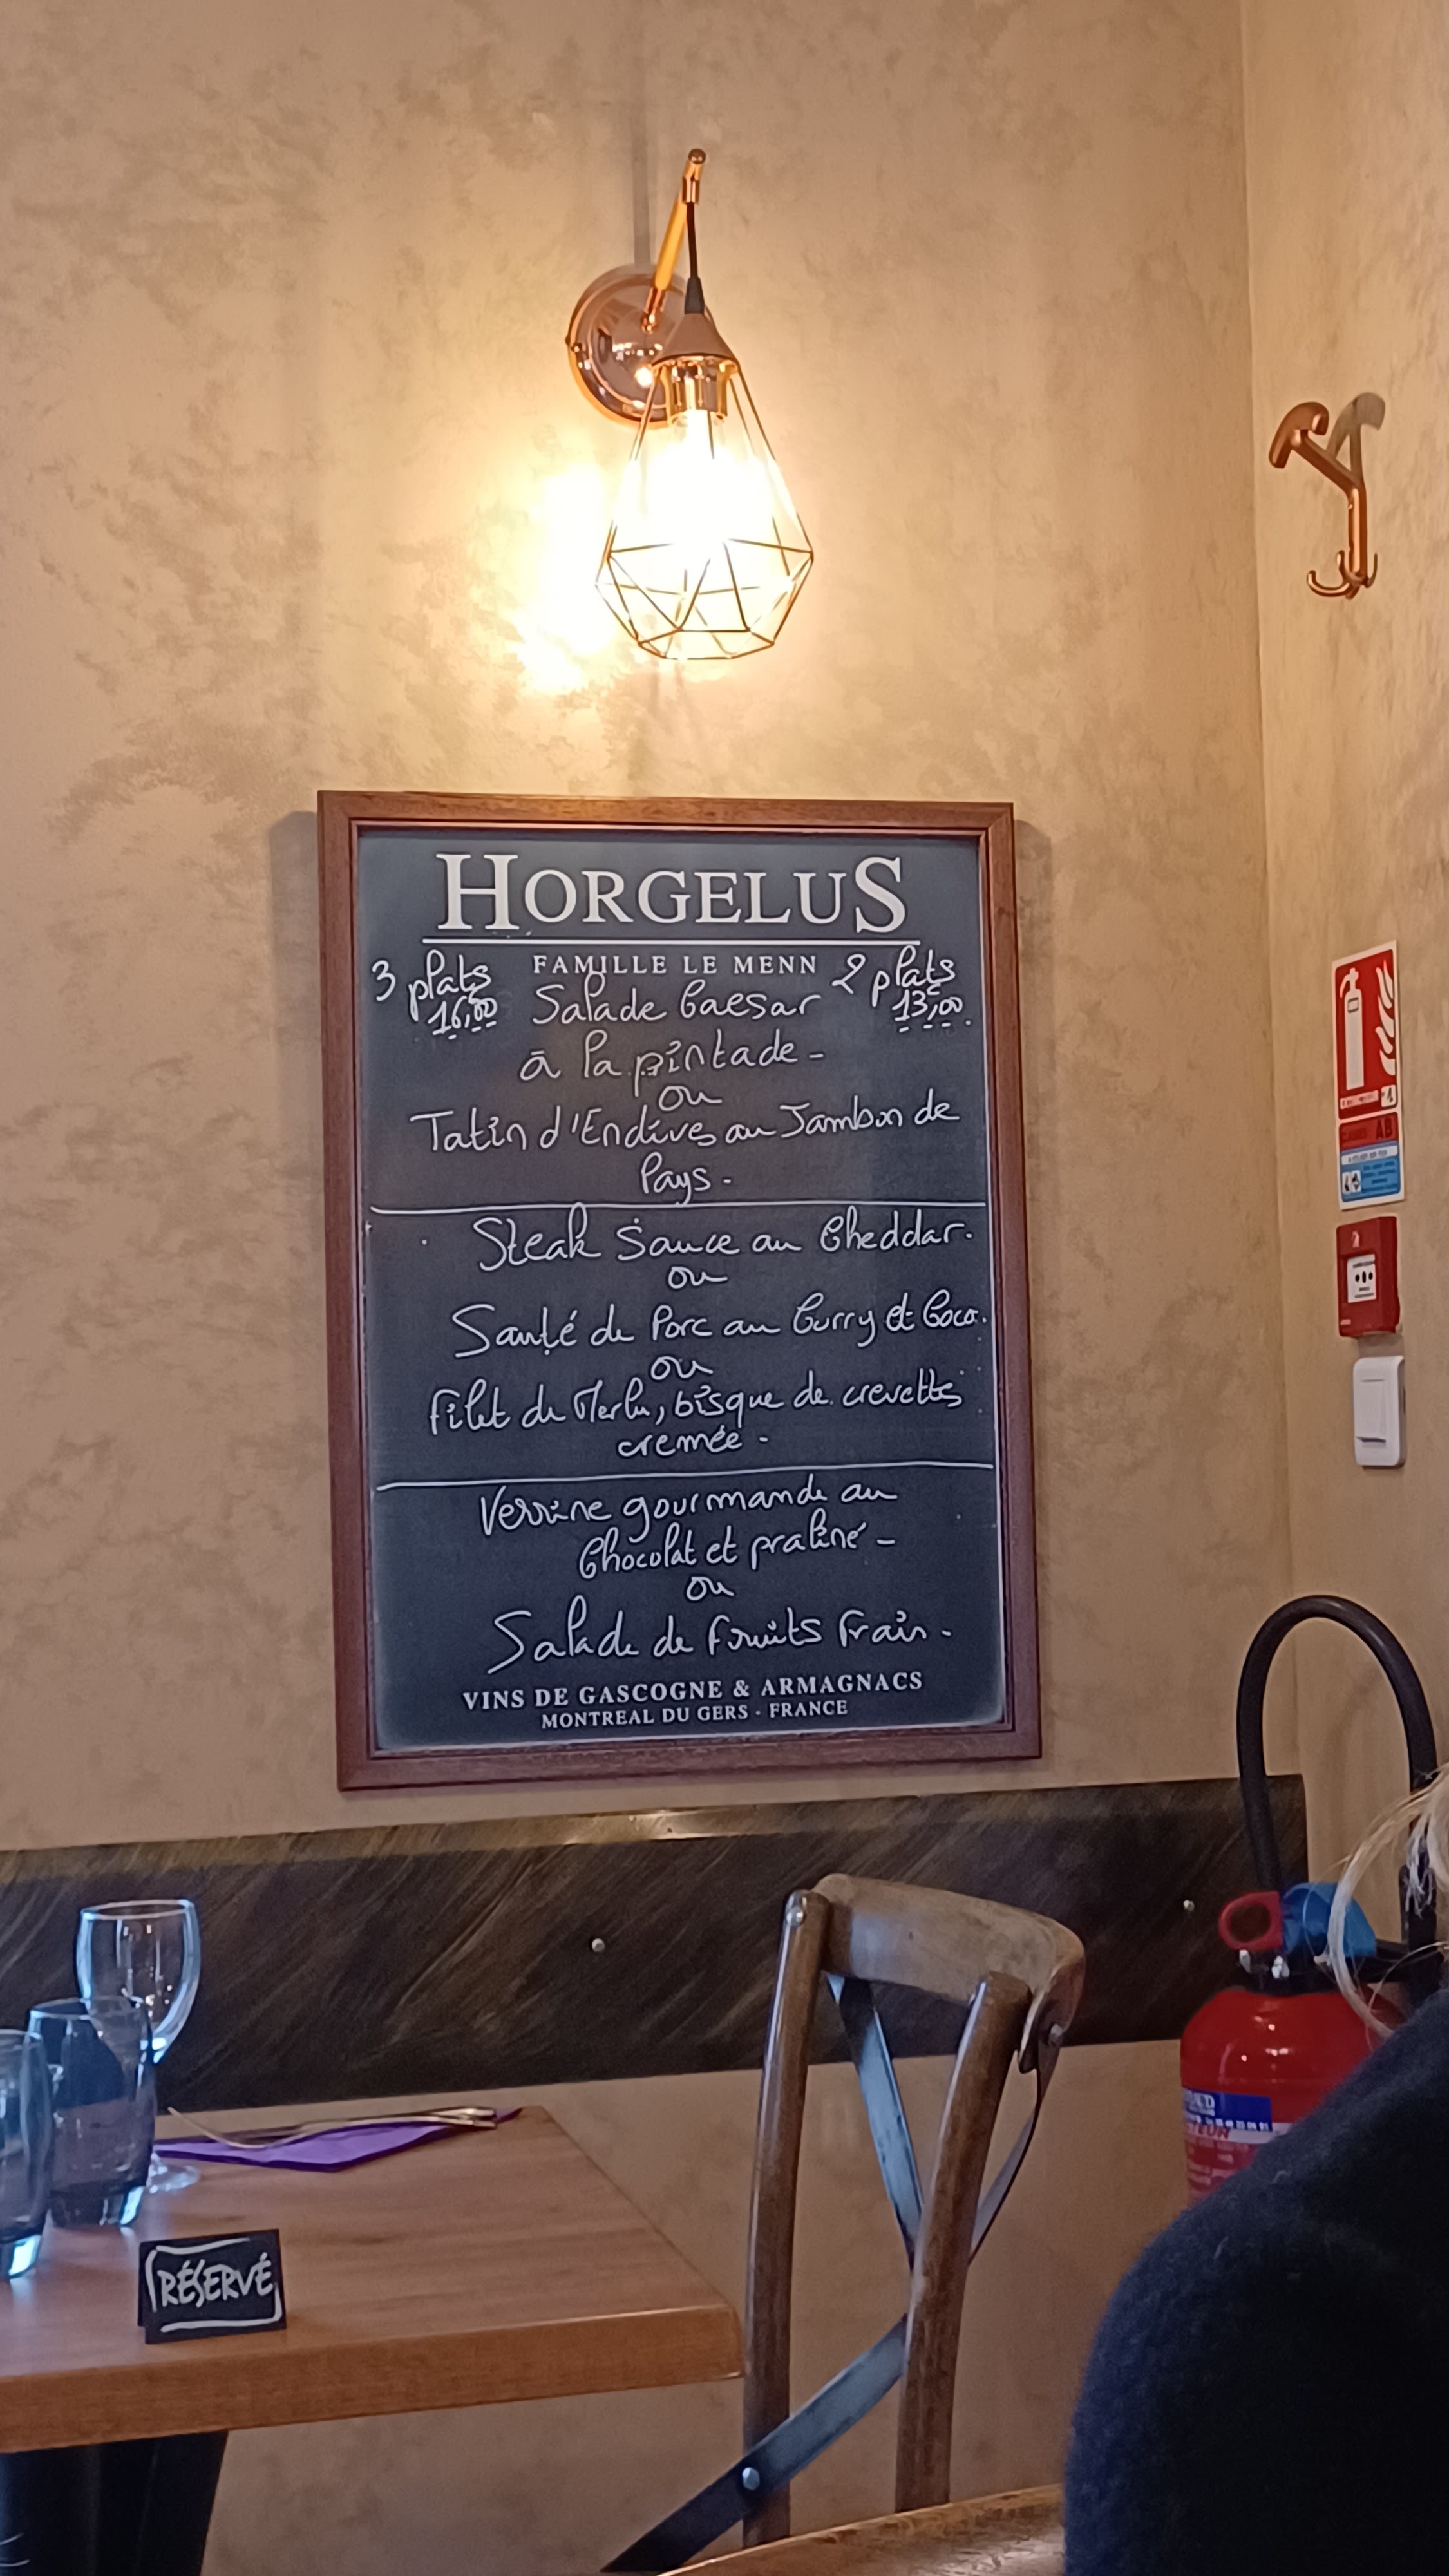 HORGELUS
FAMILLE LE MENN
3 plats
16,00
2 plats
13,00
Salade Caesar
à la pintade -
ou
Tatin d'Endives au Jambon de
Pays -
Steak Sauce au Cheddar.
ou
Sauté de Porc au Curry et Coco.
ou
Filet de Merlu, bisque de crevettes
cremée -
Verrine gourmande au
Chocolat et praliné -
ou
Salade de Fruits Frais -
VINS DE GASCOGNE & ARMAGNACS
MONTREAL DU GERS - FRANCE
AB
RÉSERVÉ